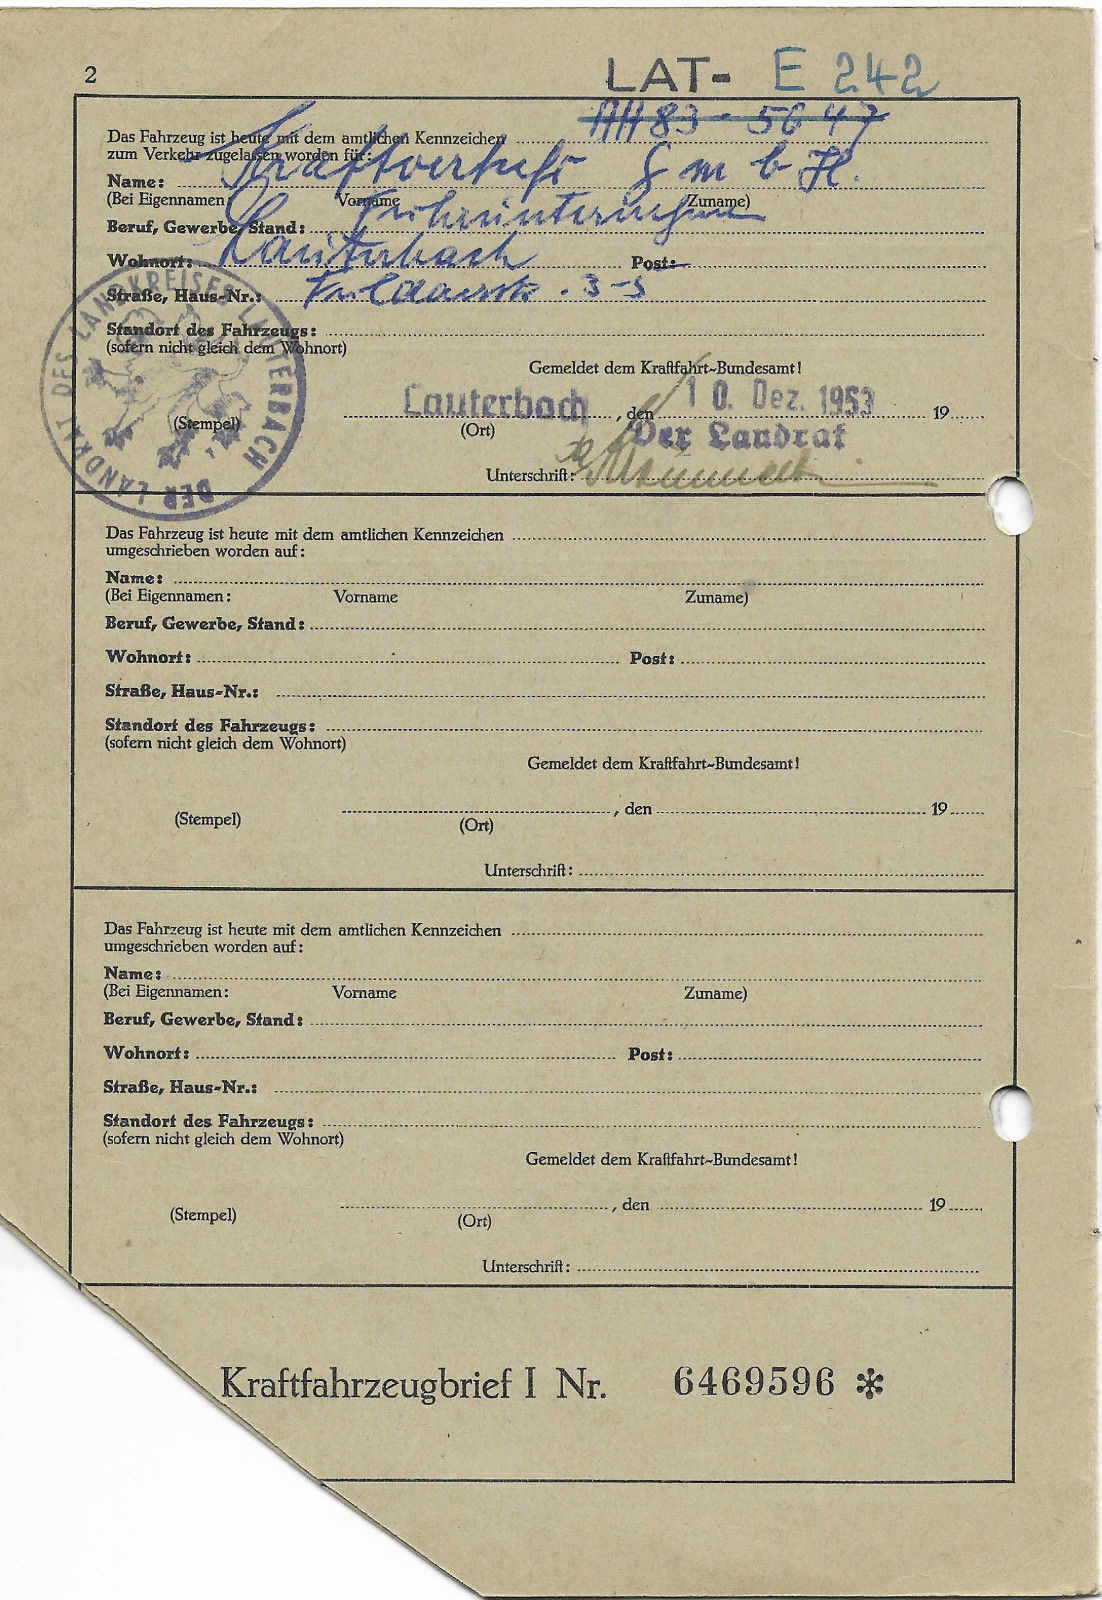 2
LAT- E 242
AH 83 - 5647
Das Fahrzeug ist heute mit dem amtlichen Kennzeichen
zum Verkehr zugelassen worden für:
Name: Kraftverkehr G m b H.
(Bei Eigennamen Vorname Zuname)
Beruf, Gewerbe, Stand: Fuhrunternehmen
Wohnort: Lauterbach Post:
Straße, Haus-Nr.: 3-5
Standort des Fahrzeugs:
(sofern nicht gleich dem Wohnort)
Gemeldet dem Kraftfahrt-Bundesamt!
Lauterbach, den 10. Dez. 1953 19
(Stempel) (Ort) Der Landrat
Unterschrift:
DER LANDRAT DES LANDKREISES LAUTERBACH
Das Fahrzeug ist heute mit dem amtlichen Kennzeichen
umgeschrieben worden auf:
Name:
(Bei Eigennamen: Vorname Zuname)
Beruf, Gewerbe, Stand:
Wohnort: Post:
Straße, Haus-Nr.:
Standort des Fahrzeugs:
(sofern nicht gleich dem Wohnort)
Gemeldet dem Kraftfahrt-Bundesamt!
, den 19
(Stempel) (Ort)
Unterschrift:
Das Fahrzeug ist heute mit dem amtlichen Kennzeichen
umgeschrieben worden auf:
Name:
(Bei Eigennamen: Vorname Zuname)
Beruf, Gewerbe, Stand:
Wohnort: Post:
Straße, Haus-Nr.:
Standort des Fahrzeugs:
(sofern nicht gleich dem Wohnort)
Gemeldet dem Kraftfahrt-Bundesamt!
, den 19
(Stempel) (Ort)
Unterschrift:
Kraftfahrzeugbrief I Nr. 6469596 *